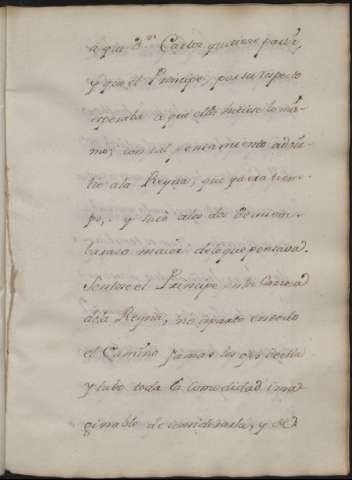 á que Dn Carlos quisiese partir,
y que el Principe, por su respeto
esperaba a que ella hiciese lo mis-
mo; con tal pensamiento advir-
tio a la Reyna, que ya era tiem-
po, y sacó a los dos de un em-
barazo maior de lo que pensava.
Sentose el Principe en la Carroza
de la Reyna, no apartó en todo
el Camino jamas los ojos de ella
y tubo toda la Comodidad ima-
ginable de considerarla, y de